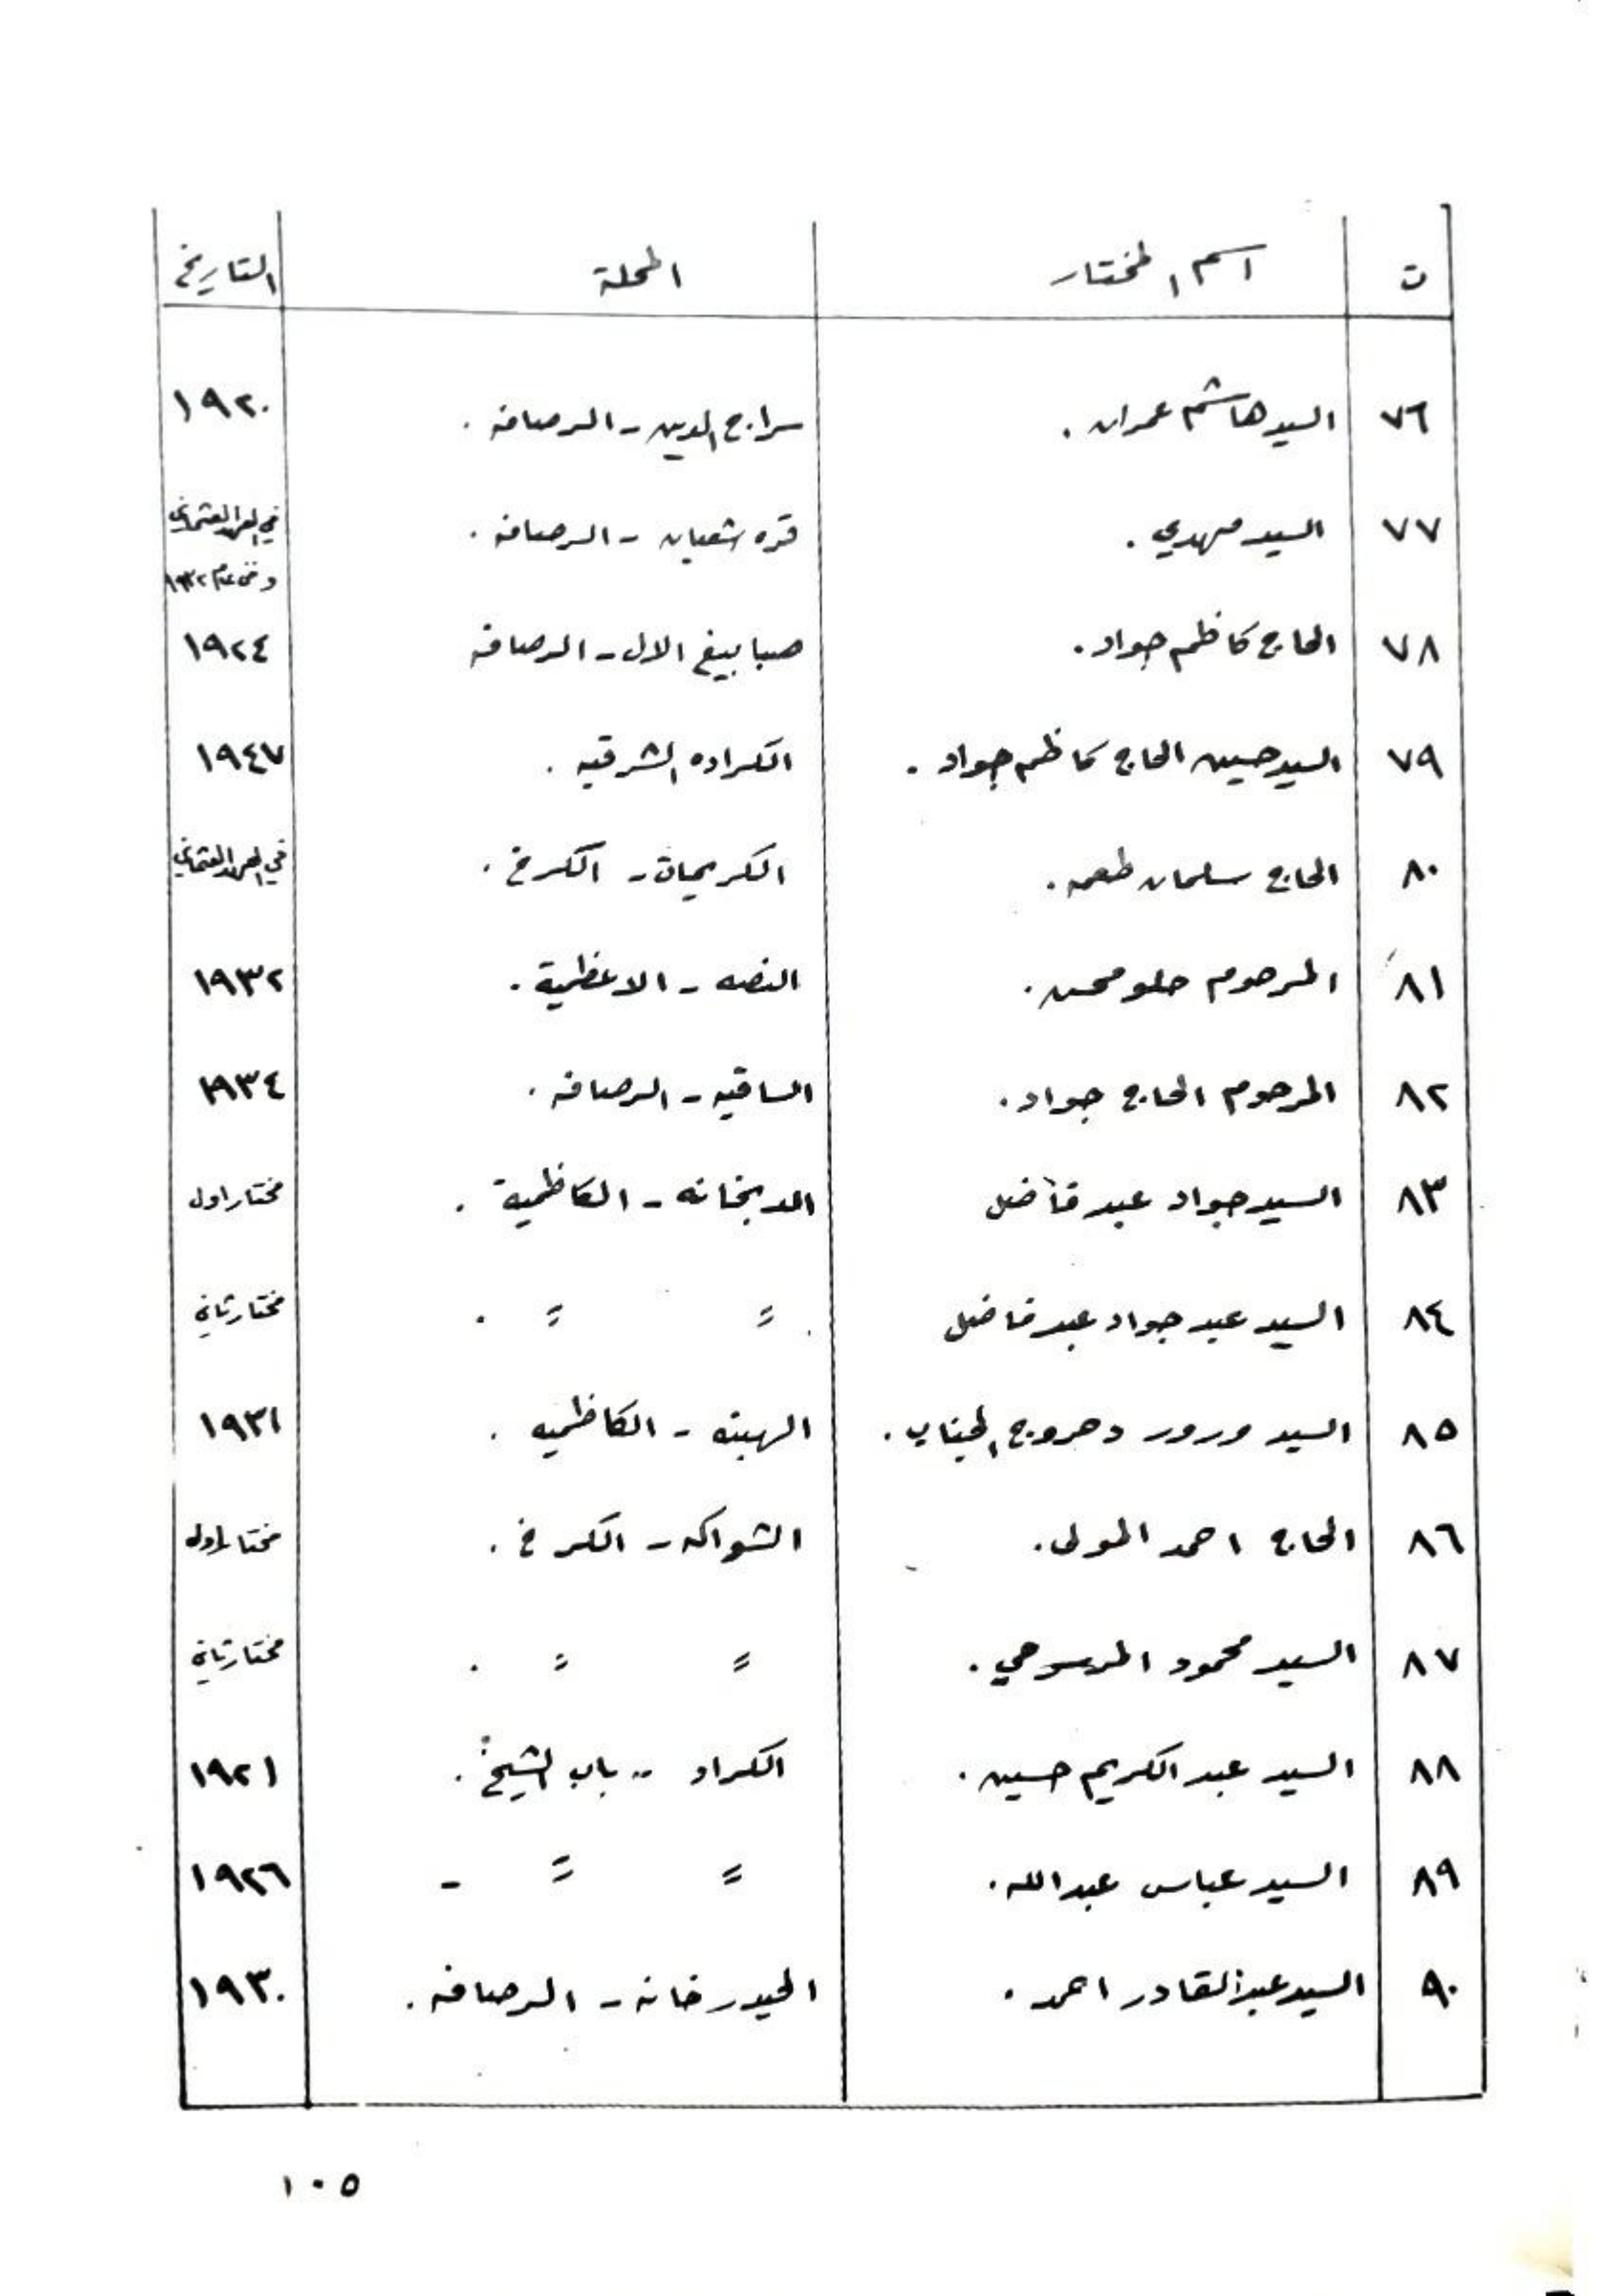 ت اسم المختار المحلة التاريخ
٧٦ السيد هاشم عمران . سراج الدين - الرصافه . ١٩٢٠
٧٧ السيد مهدي . قره شعبان - الرصافه . في العهد العثماني
وفي عام ١٩٣٢
٧٨ الحاج كاظم جواد . صبابيغ الال - الرصافه ١٩٢٤
٧٩ السيد حسين الحاج كاظم جواد . الكراده الشرقيه . ١٩٤٧
٨٠ الحاج سلمان طعمه . الكريمات - الكرخ . في العهد العثماني
٨١ المرحوم حلو محسن . النصه - الاعظمية . ١٩٣٢
٨٢ المرحوم الحاج جواد . الساقيه - الرصافه . ١٩٣٤
٨٣ السيد جواد عبد فاضل الدبخانه - الكاظمية . مختار اول
٨٤ السيد عبد جواد عبد فاضل = = . مختار ثاني
٨٥ السيد ورور دهروج . الهبنه - الكاظميه . ١٩٣١
٨٦ الحاج احمد المولى . الشواكه - الكرخ . مختار اول
٨٧ السيد محمود . = = . مختار ثاني
٨٨ السيد عبد الكريم حسين . الكراد - باب الشيخ . ١٩٢١
٨٩ السيد عباس عبدالله . = = - ١٩٢٦
٩٠ السيد عبد القادر احمد . الحيدرخانه - الرصافه . ١٩٣٠
١٠٥